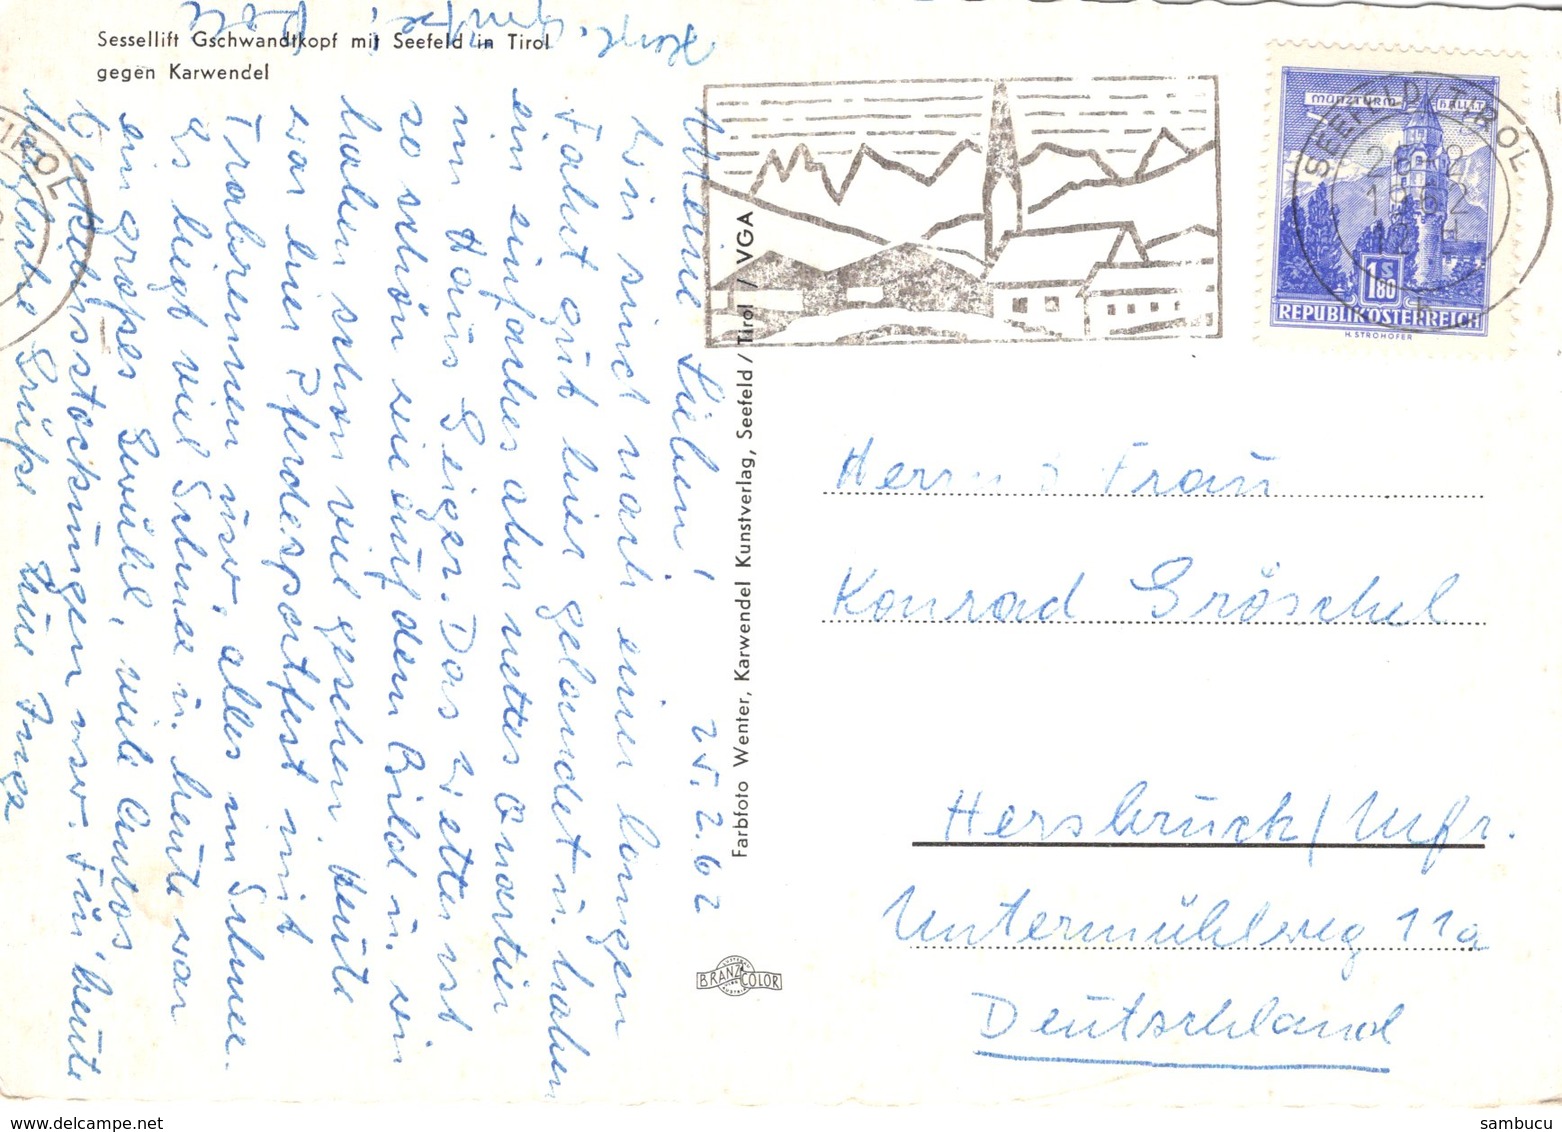 Sessellift Gschwandtkopf mit Seefeld in Tirol
gegen Karwendel
Meine Lieben! 25.2.62
Wir sind nach einer langen
Fahrt gut hier gelandet u. haben
ein einfaches aber nettes Quartier
im Haus Geiger. Das Wetter ist
so schön wie auf dem Bild u. wir
haben schon viel gesehen. Heute
war hier Pferdesportfest mit
Trabrennen usw, alles im Schnee.
Es liegt viel Schnee u. heute war
ein großes Gewühl, viele Autos,
Verkehrsstockungen usw. Für heute
herzliche Grüße Eure Inge
Farbfoto Wenter, Karwendel Kunstverlag, Seefeld / Tirol / VGA
BRANZ COLOR
MÜNZTURM HALL I.T.
S
1 80
REPUBLIK ÖSTERREICH
H. STROHOFER
SEEFELD (TIROL)
1962
TIROL
Herrn u Frau
Konrad Gröschel
Hersbruck/Mfr.
Untermühlweg 11a
Deutschland
delcampe.net
sambucu